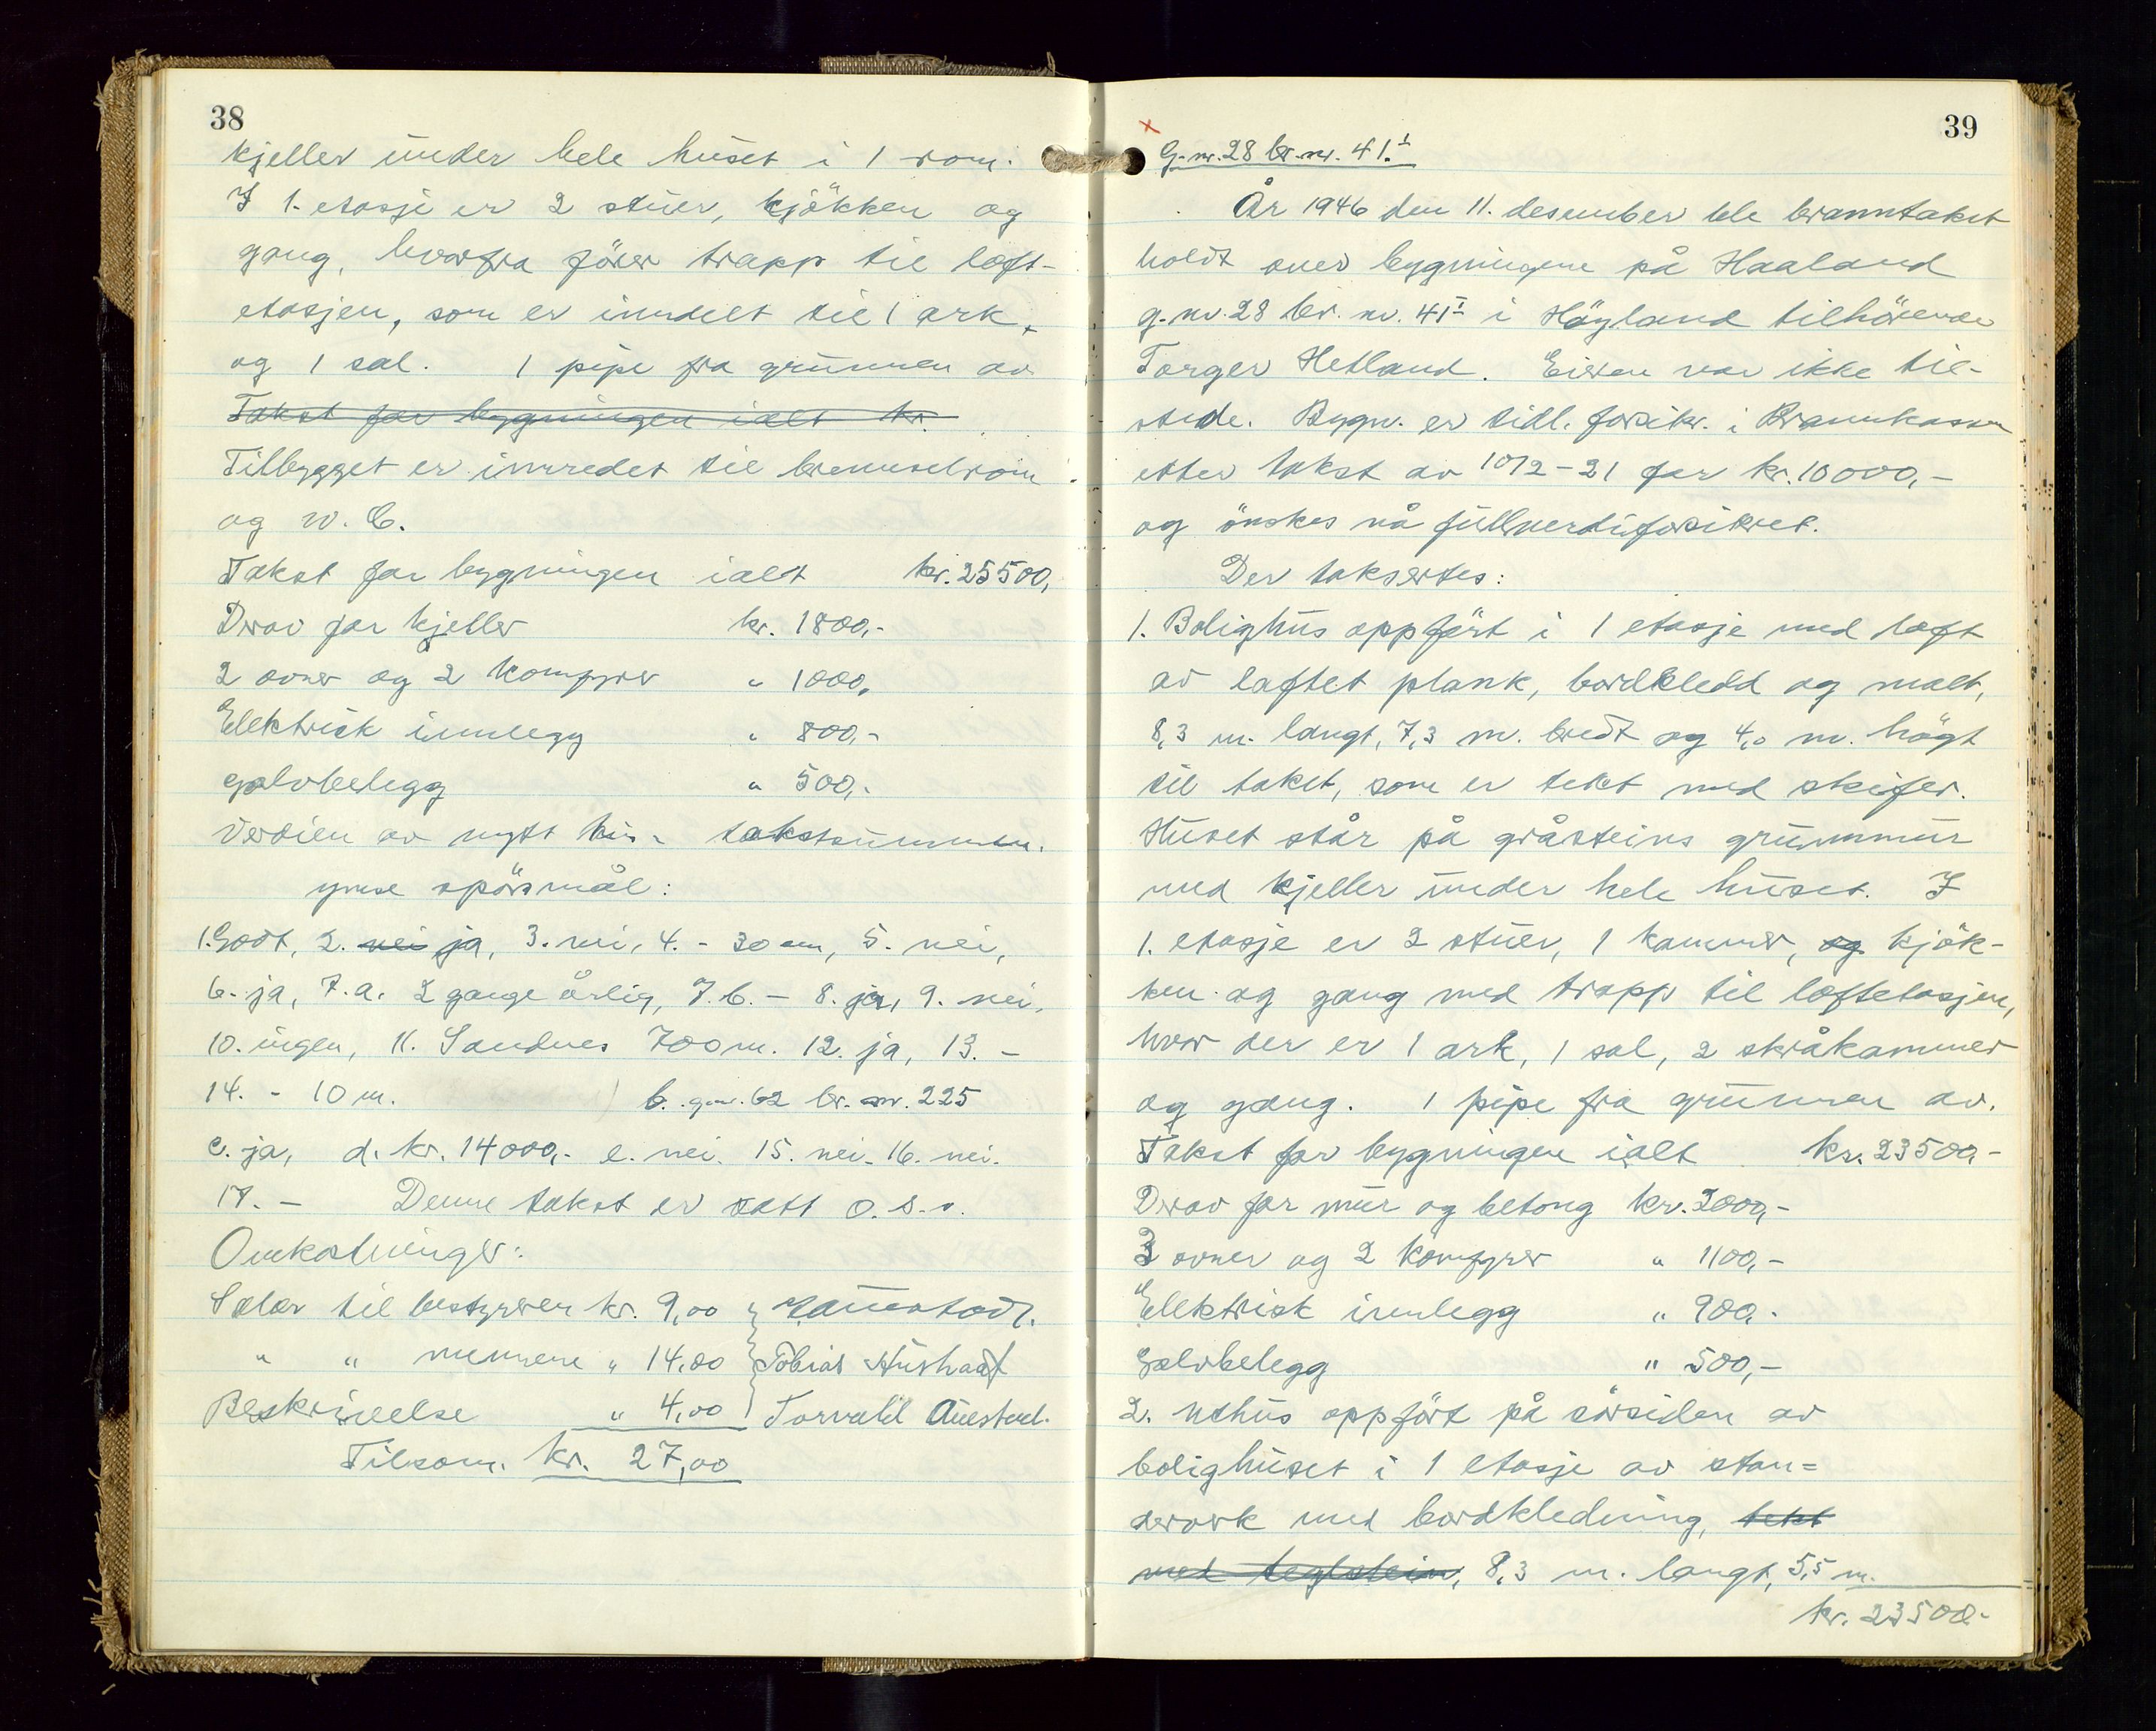 38
kjeller under hele huset i 1 rom.
I 1. etasje er 2 stuer, kjökken og
gang, hvorfra förer trapp til loft-
etasjen, som er inndelt til 1 ark,
og 1 sal. 1 pipe fra grunnen av
Takst for bygningen ialt kr.
Tilbygget er innredet til brenselrom
og W.C.
Takst for bygningen ialt kr. 25500,
Derav for kjeller kr. 1800,-
2 ovner og 2 komfyrer " 1000,
Elektrisk innlegg " 800,-
golvbelegg " 500,-
Verdien av nytt hus = takstsummen.
ymse spörsmål:
1. Godt, 2. nei ja, 3. nei, 4. - 30 cm, 5. nei,
6. ja, 7.a. 2 gange årlig, 7.b. - 8. ja, 9. nei,
10. ingen, 11. Sandnes 700 m. 12. ja, 13. -
14. - 10 m. b. g.nr. 62 br. nr. 225
c. ja, d. kr. 14000,- e. nei. 15. nei. 16. nei.
17. - Denne takst er satt o.s.v.
Omkostninger:
Salær til bestyreren kr. 9,00
" " mennene " 14,00 Tobias Hushaat
Beskrivelse " 4,00 Torvald Auestad.
Tilsom. kr. 27,00
39
G.nr. 28 br.nr. 41.I
År 1946 den 11. desember ble branntakst
holdt over bygningene på Haaland
g.nr. 28 br. nr. 41 I i Höyland tilhörende
Torger Hetland. Eieren var ikke til-
stede. Bygn. er tidl. forsikr. i Brannkassen
etter takst av 10/2-21 for kr. 10000,-
og önskes nå fullverdiforsikret.
Der taksertes:
1. Bolighus oppfört i 1 etasje med loft
av laftet plank, bordkledd og malt,
8,3 m. langt, 7,3 m. bredt og 4,0 m. högt
til taket, som er tekt med skifer.
Huset står på gråsteins grunnmur
med kjeller under hele huset. I
1. etasje er 2 stuer, 1 kammer, og kjök-
ken og gang med trapp til loftetasjen,
hvor der er 1 ark, 1 sal, 2 skråkammer
og gang. 1 pipe fra grunnen av.
Takst for bygningen ialt kr. 23500,-
Derav for mur og betong kr. 2000,-
3 ovner og 2 komfyrer " 1100,-
Elektrisk innlegg " 900,-
Golvbelegg " 500,-
2. Uthus oppfört på sörsiden av
bolighuset i 1 etasje av sten=
derverk med bordkledning, tekt
med teglstein, 8,3 m. langt, 5,5 m.
kr. 23500-